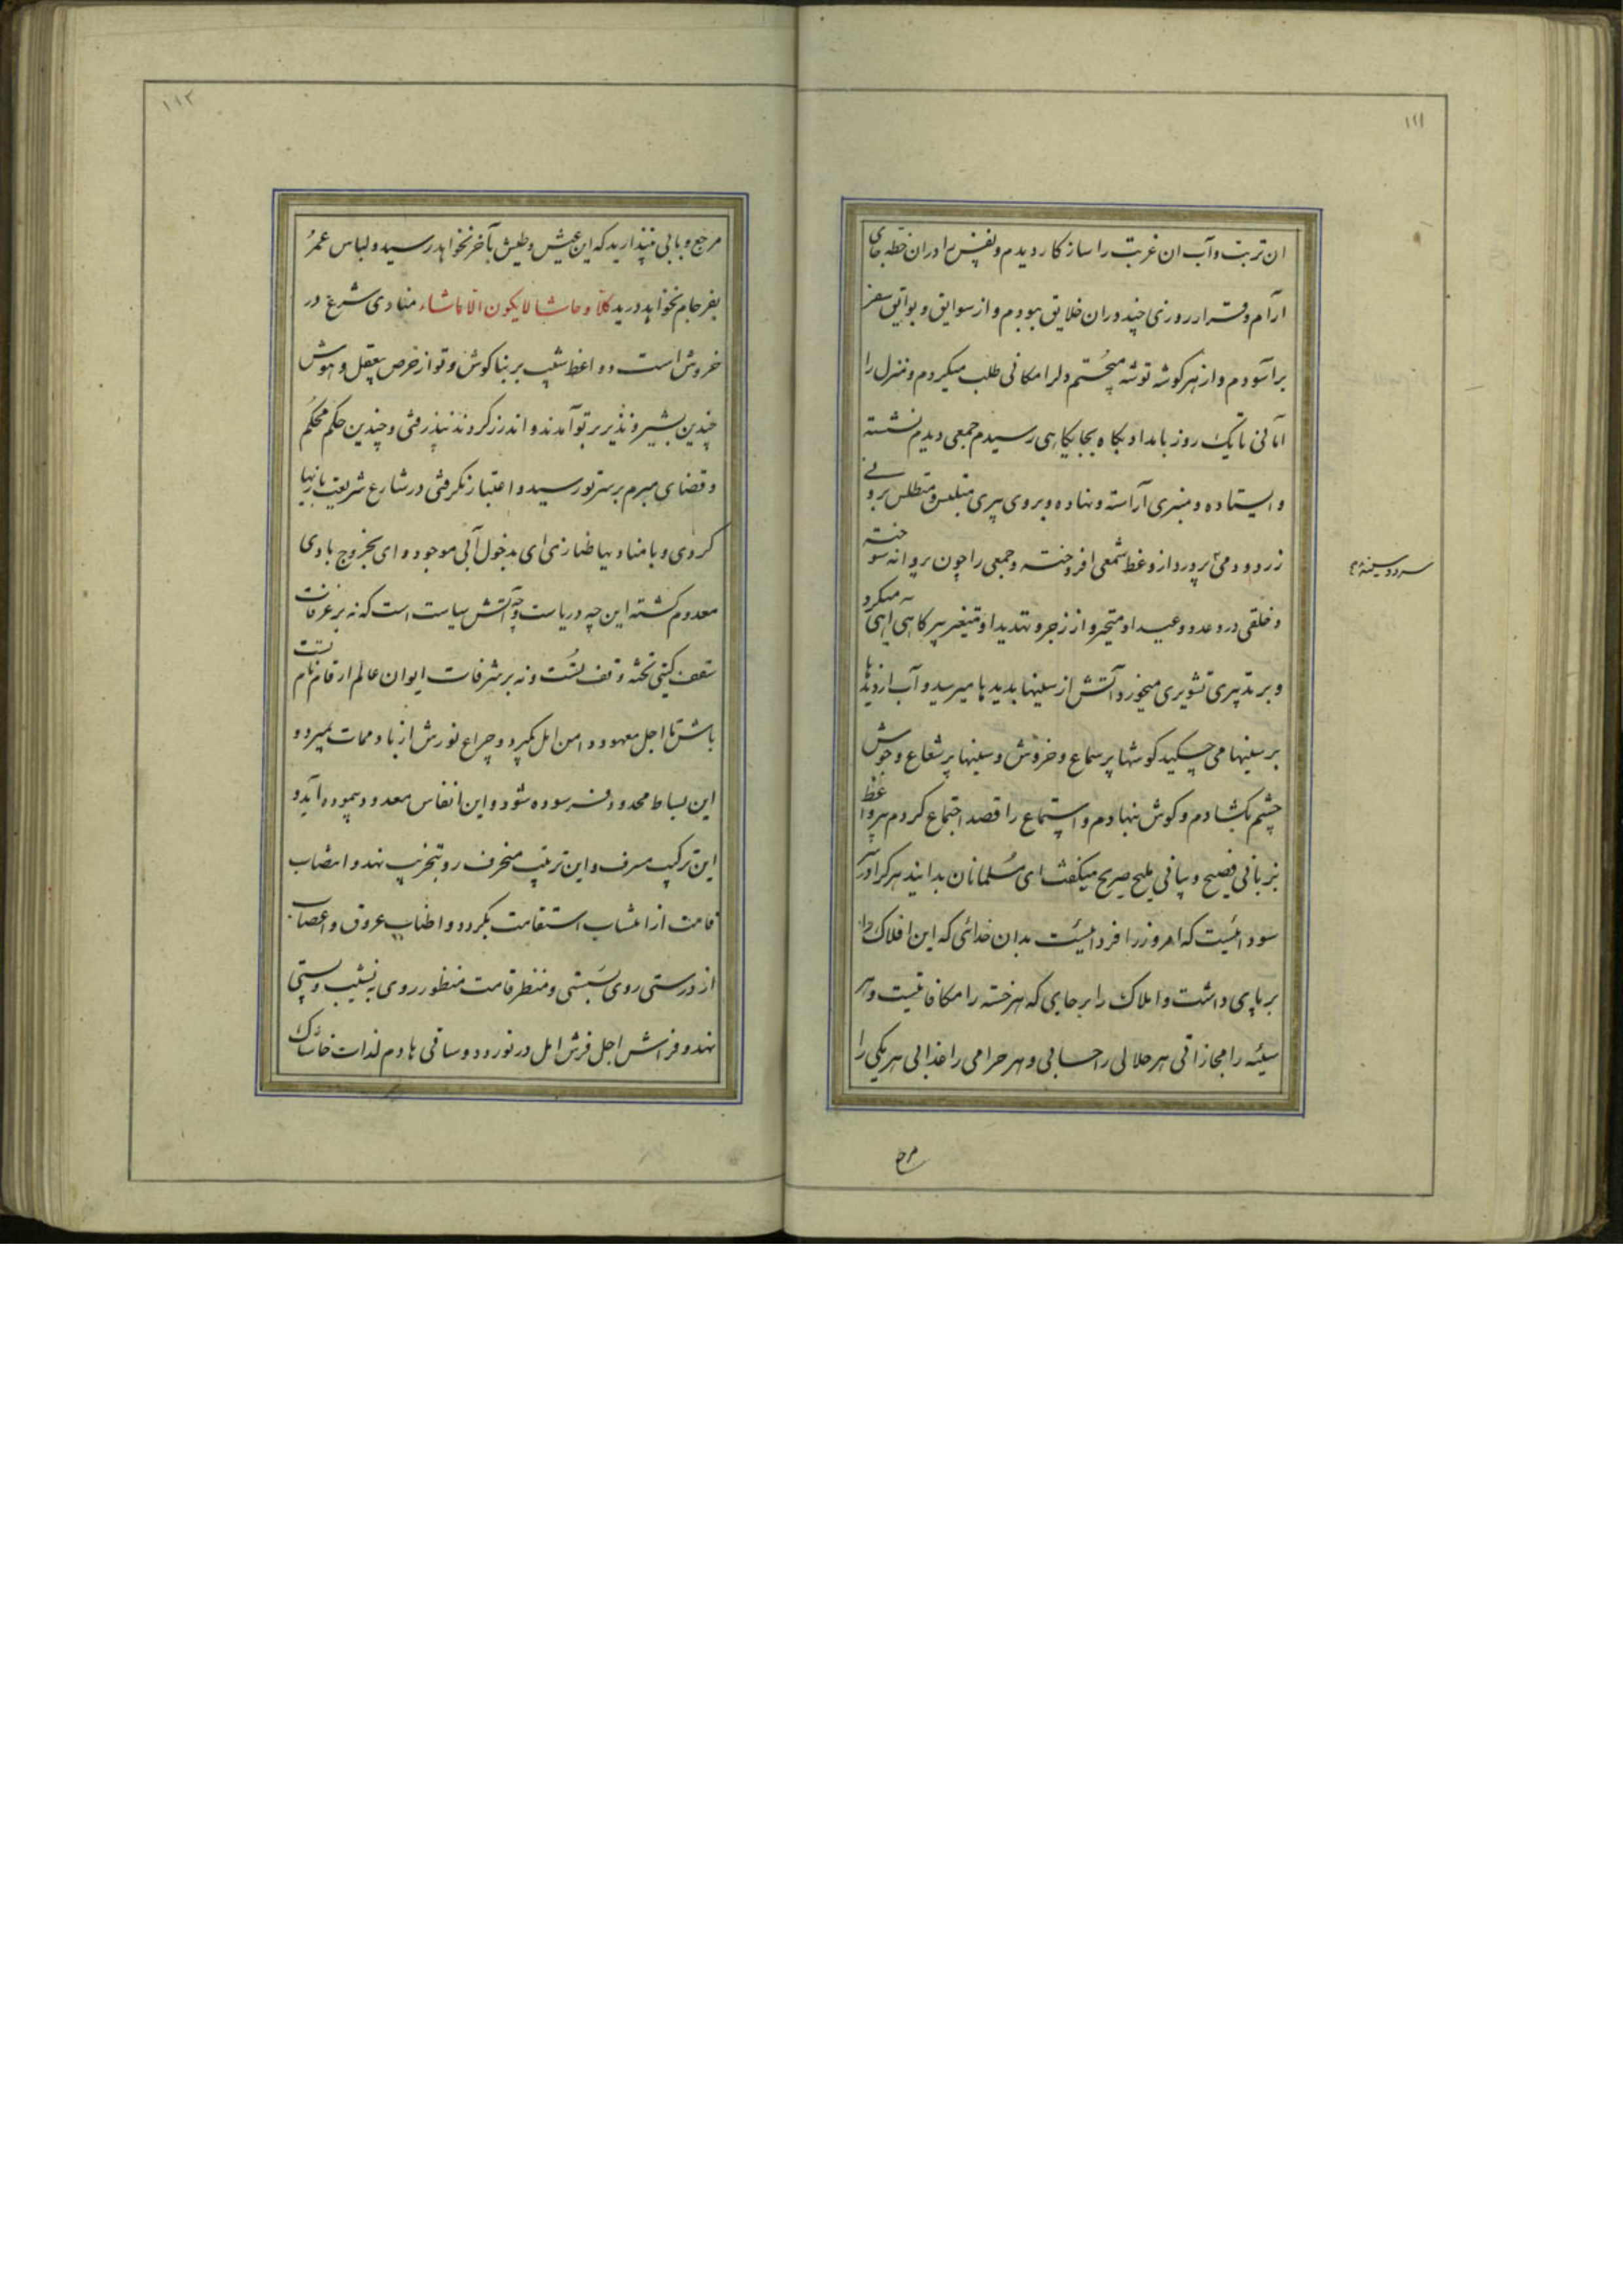 ۱۱۱
ان تربت و آب ان غربت را ساز کار دیدم و نفس را دران خطه جای
آرام و قرار روزی چند دران خلایق ببودم و از سوایق و بوایق سفر
برآسودم و از هر کوشه توشه میجستم و دلرا مکانی طلب میکردم و منزل را
امانی تا یک روز بامداد بکاه بجایکاهی رسیدم جمعی دیدم نشسته
و ایستاده و منبری آراسته و نهاده و بروی پیری متلبس و متطلس بر وی
زرد و دمی پر ورد از وعظ شمعی افروخته و جمعی را چون پروانه سوخته
و خلقی در وعد و وعید او متحیر و از زجر و تهدید او متغیر پیر کاهی
و بر تدبیری تشویری میخورد آتش از سینها بدیدها میرسید و آب از دیدها
بر سینها می چکید کوشها پر سماع و خروش و سینها پر شعاع و جوش
چشم بکشادم و کوش بنهادم و استماع را قصد اجتماع کردم پیر واعظ
بزبانی فصیح و بیانی ملیح صریح میکفت ای مسلمانان بدانید هر کرا در سر
سودائیست که امروز را فردائیست بدان خدائی که این افلاک را
بر پای داشت و املاک را بر جای که هر خسته را مکافاتیست و هر
سیئه را مجازاتی هر حلالی را حسابی و هر حرامی را عذابی هر یکی را
مرجع
۱۱۲
مرجع و بابی مپندارید که این عیش و طیش بآخر نخواهد رسید و لباس عمر
بفرجام نخواهد درید کلا و حاشا لا یکون الا ما شاء منادی شرع در
خروش است و واعظ شیب بر بناکوش و تو از حرص بیعقل و هوش
چندین بشیر و نذیر بر تو آمدند و اندرز کردند نپذرفتی و چندین حکم محکم
و قضای مبرم بر سر تو رسید و اعتبار نکرفتی در شارع شریعت بازیها
کردی و با منادیها طنازی ای بدخول آبی موجود و ای بخروج بادی
معدوم کشته این چه دریاست و چه آتش سیاست است که نه بر غرفات
سقف کیتی تخته وقف تست و نه بر شرفات ایوان عالم ارقام نام تست
باش تا اجل معهود دامن امل بکیرد و چراغ نورش از باد ممات بمیرد و
این بساط محدود فرسوده شود و این انفاس معدود پیموده آید و
این ترکیب مسرف و این ترتیب منحرف رو بتخریب نهد و انتصاب
قامت از انتساب استقامت بکردد و اطناب عروق و اعصاب
از درستی روی بسستی و منظر قامت منظور روی به نشیب و پستی
نهد و فراش اجل فرش امل در نوردد و ساقی هادم لذات خاشاک